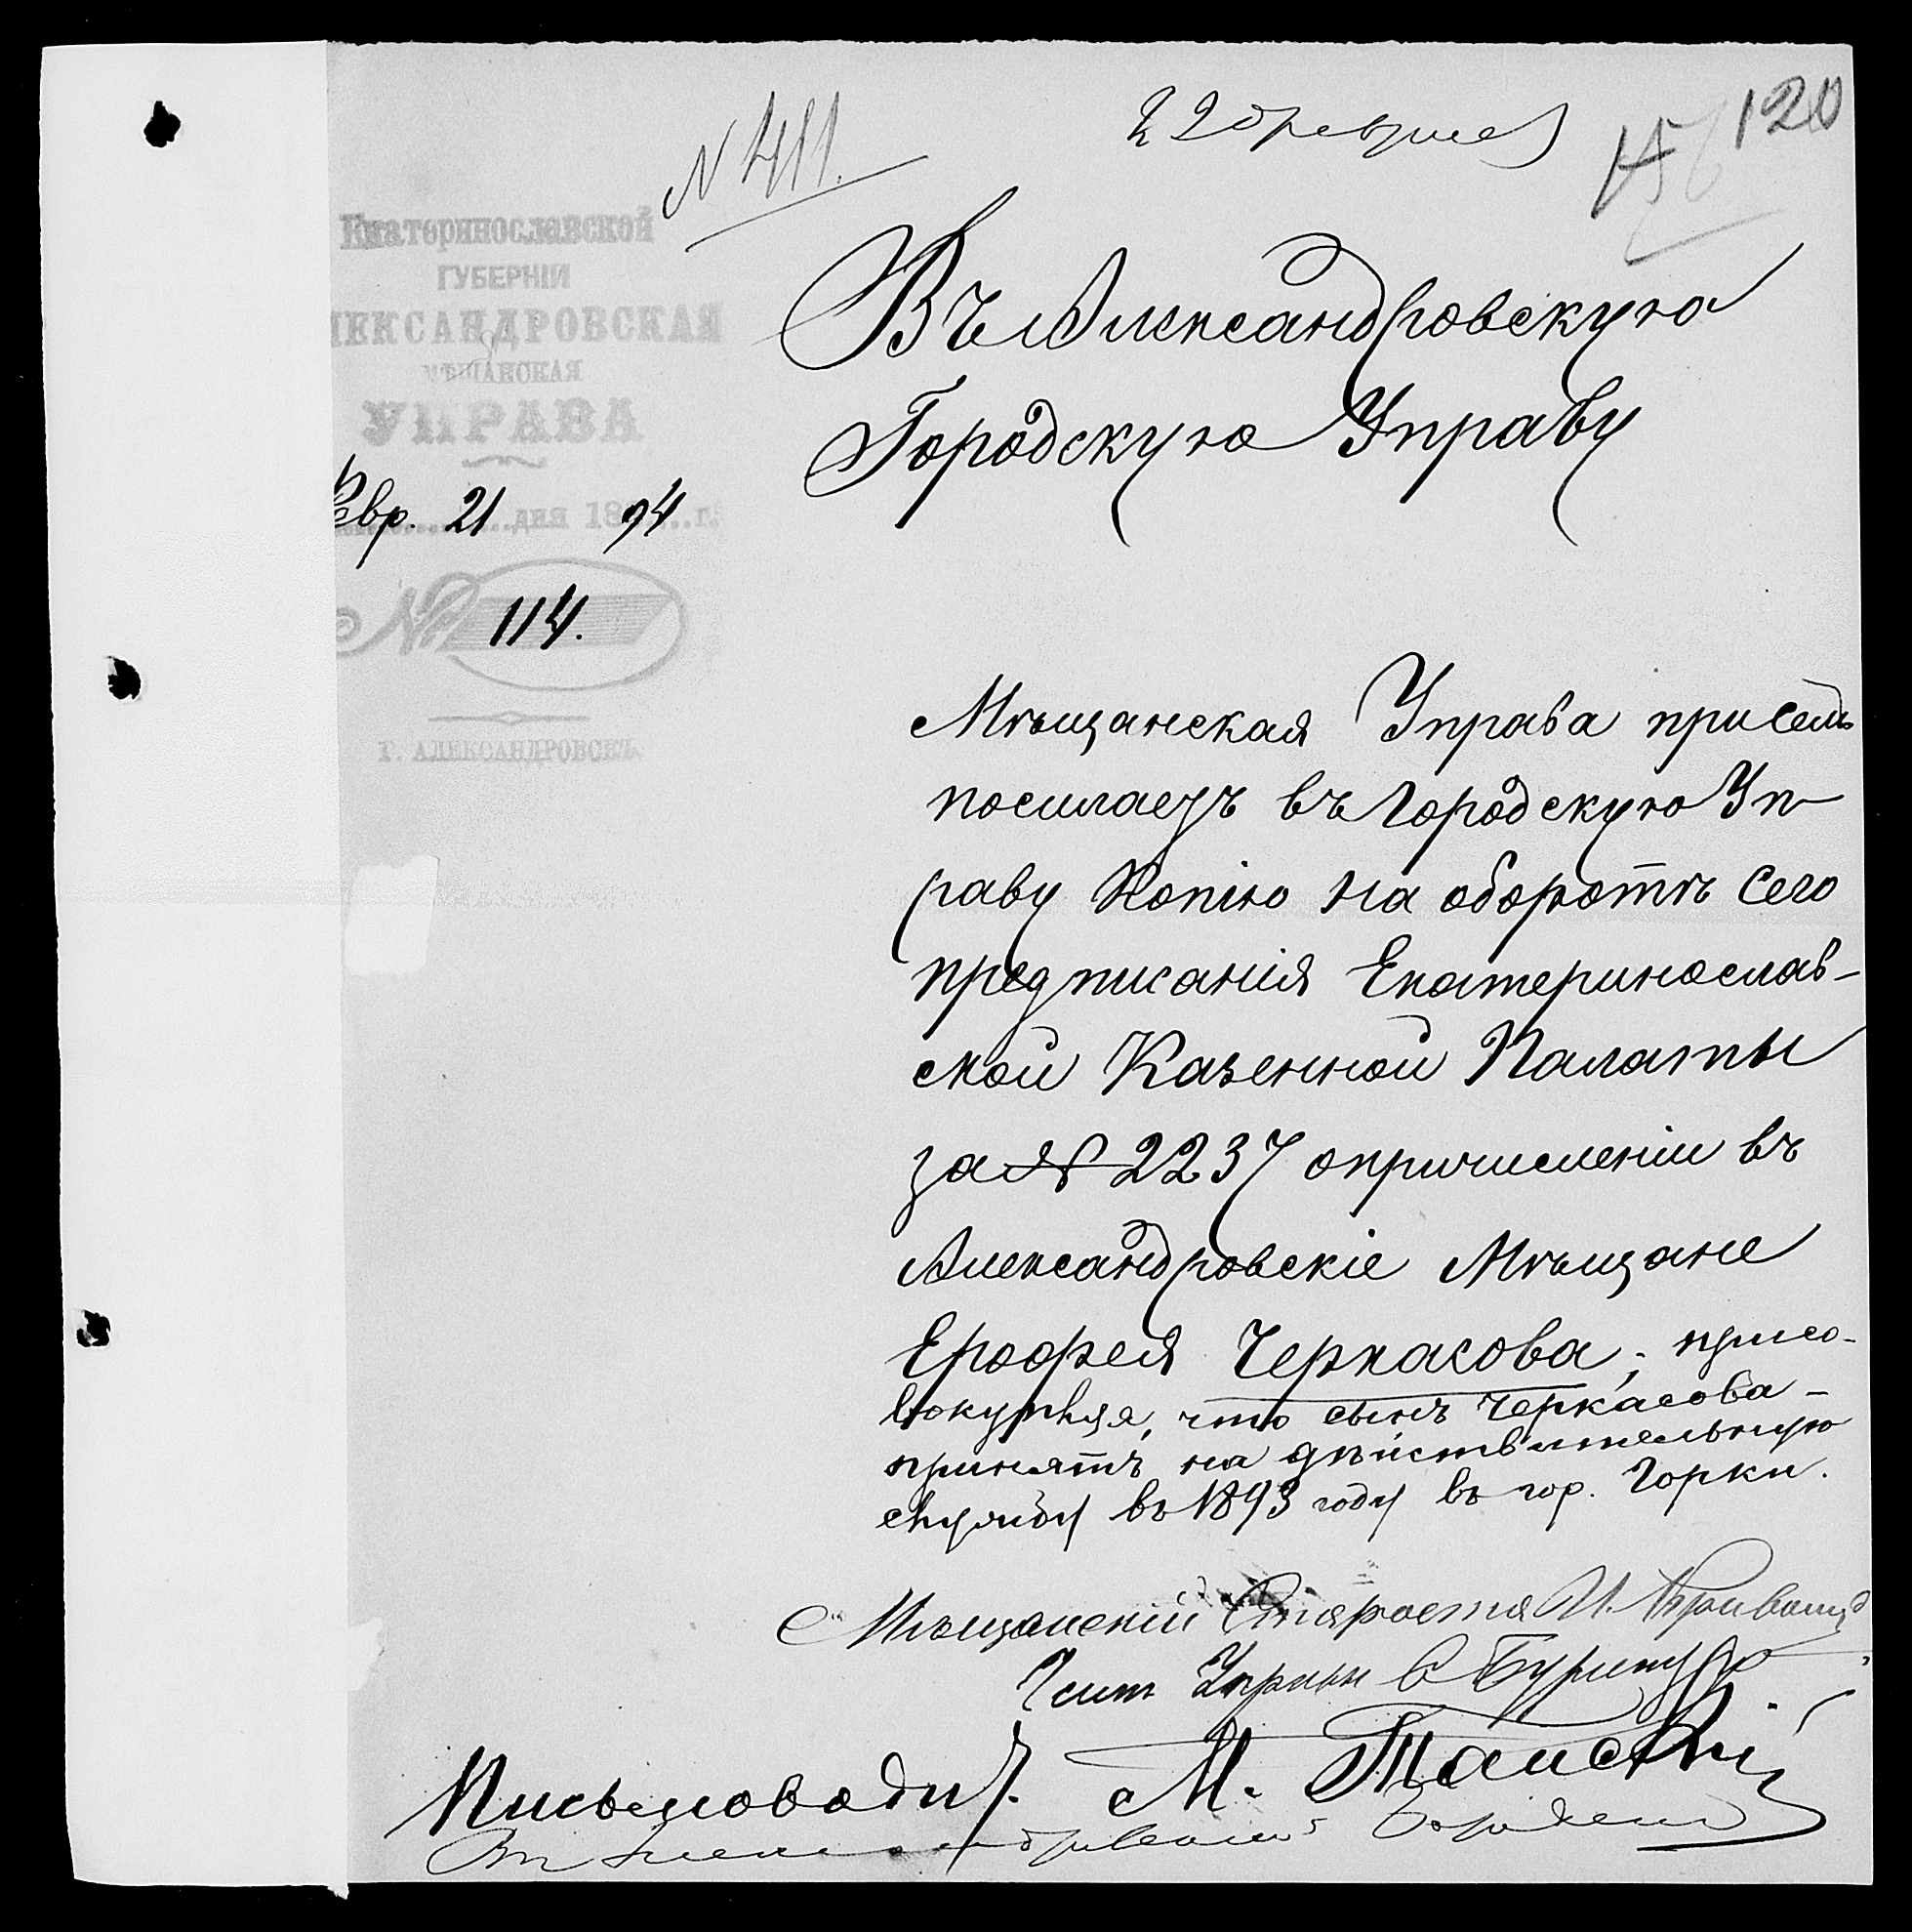 22 февраля
120
№ 411.
Екатеринославской
ГУБЕРНІИ
ЛЕКСАНДРОВСКАЯ
МѢЩАНСКАЯ
УПРАВА
Февр. 21 дня 1894 г.
№ 114.
Г. АЛЕКСАНДРОВСКЪ
Въ Александровскую
Городскую Управу
Мѣщанская Управа при семъ
посилаетъ въ Городскую Уп-
раву Копію на оборотѣ сего
предписанія Екатеринослав-
ской Казенной Палаты
за № 2237 о причисленіи въ
Александровскіе Мѣщане
Ерофея Черкасова, присо-
вокупляя, что сынъ Черкасова
принятъ на дѣйствительную
службу въ 1893 году въ гор. Горки.
Мѣщанскій Староста И.
Член Управы
Письмоводит. М.